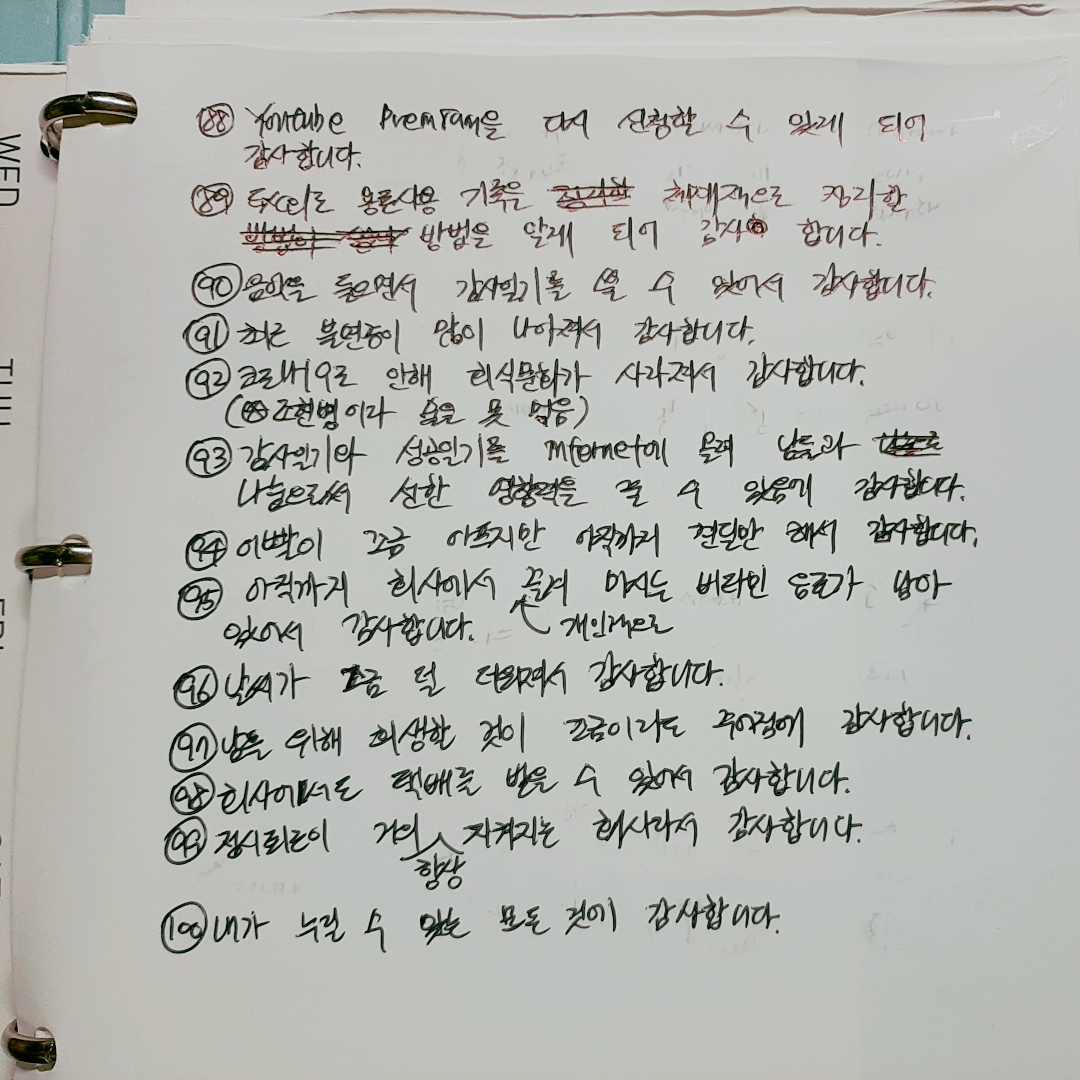 WED
THU
FRI
88 Youtube Premium을 다시 신청할 수 있게 되어
감사합니다.
89 Excel로 용돈사용 기록을 체계적으로 정리할
방법을 알게 되어 감사 합니다.
90 음악을 들으면서 감사일기를 쓸 수 있어서 감사합니다.
91 최근 불면증이 많이 나아져서 감사합니다.
92 코로나19로 인해 회식문화가 사라져서 감사합니다.
(조현병이라 술을 못 먹음)
93 감사일기와 성공일기를 internet에 올려 남들과
나눔으로써 선한 영향력을 끌 수 있음에 감사합니다.
94 이빨이 조금 아프지만 아직까지 견딜만 해서 감사합니다.
95 아직까지 회사에서 개인적으로 꿍쳐 마시는 버라인 음료가 남아
있어서 감사합니다.
96 날씨가 조금 덜 더워져서 감사합니다.
97 남을 위해 희생할 것이 조금이라도 주어짐에 감사합니다.
98 회사에서도 택배를 받을 수 있어서 감사합니다.
99 정시퇴근이 거의 항상 지켜지는 회사라서 감사합니다.
100 내가 누릴 수 있는 모든 것에 감사합니다.